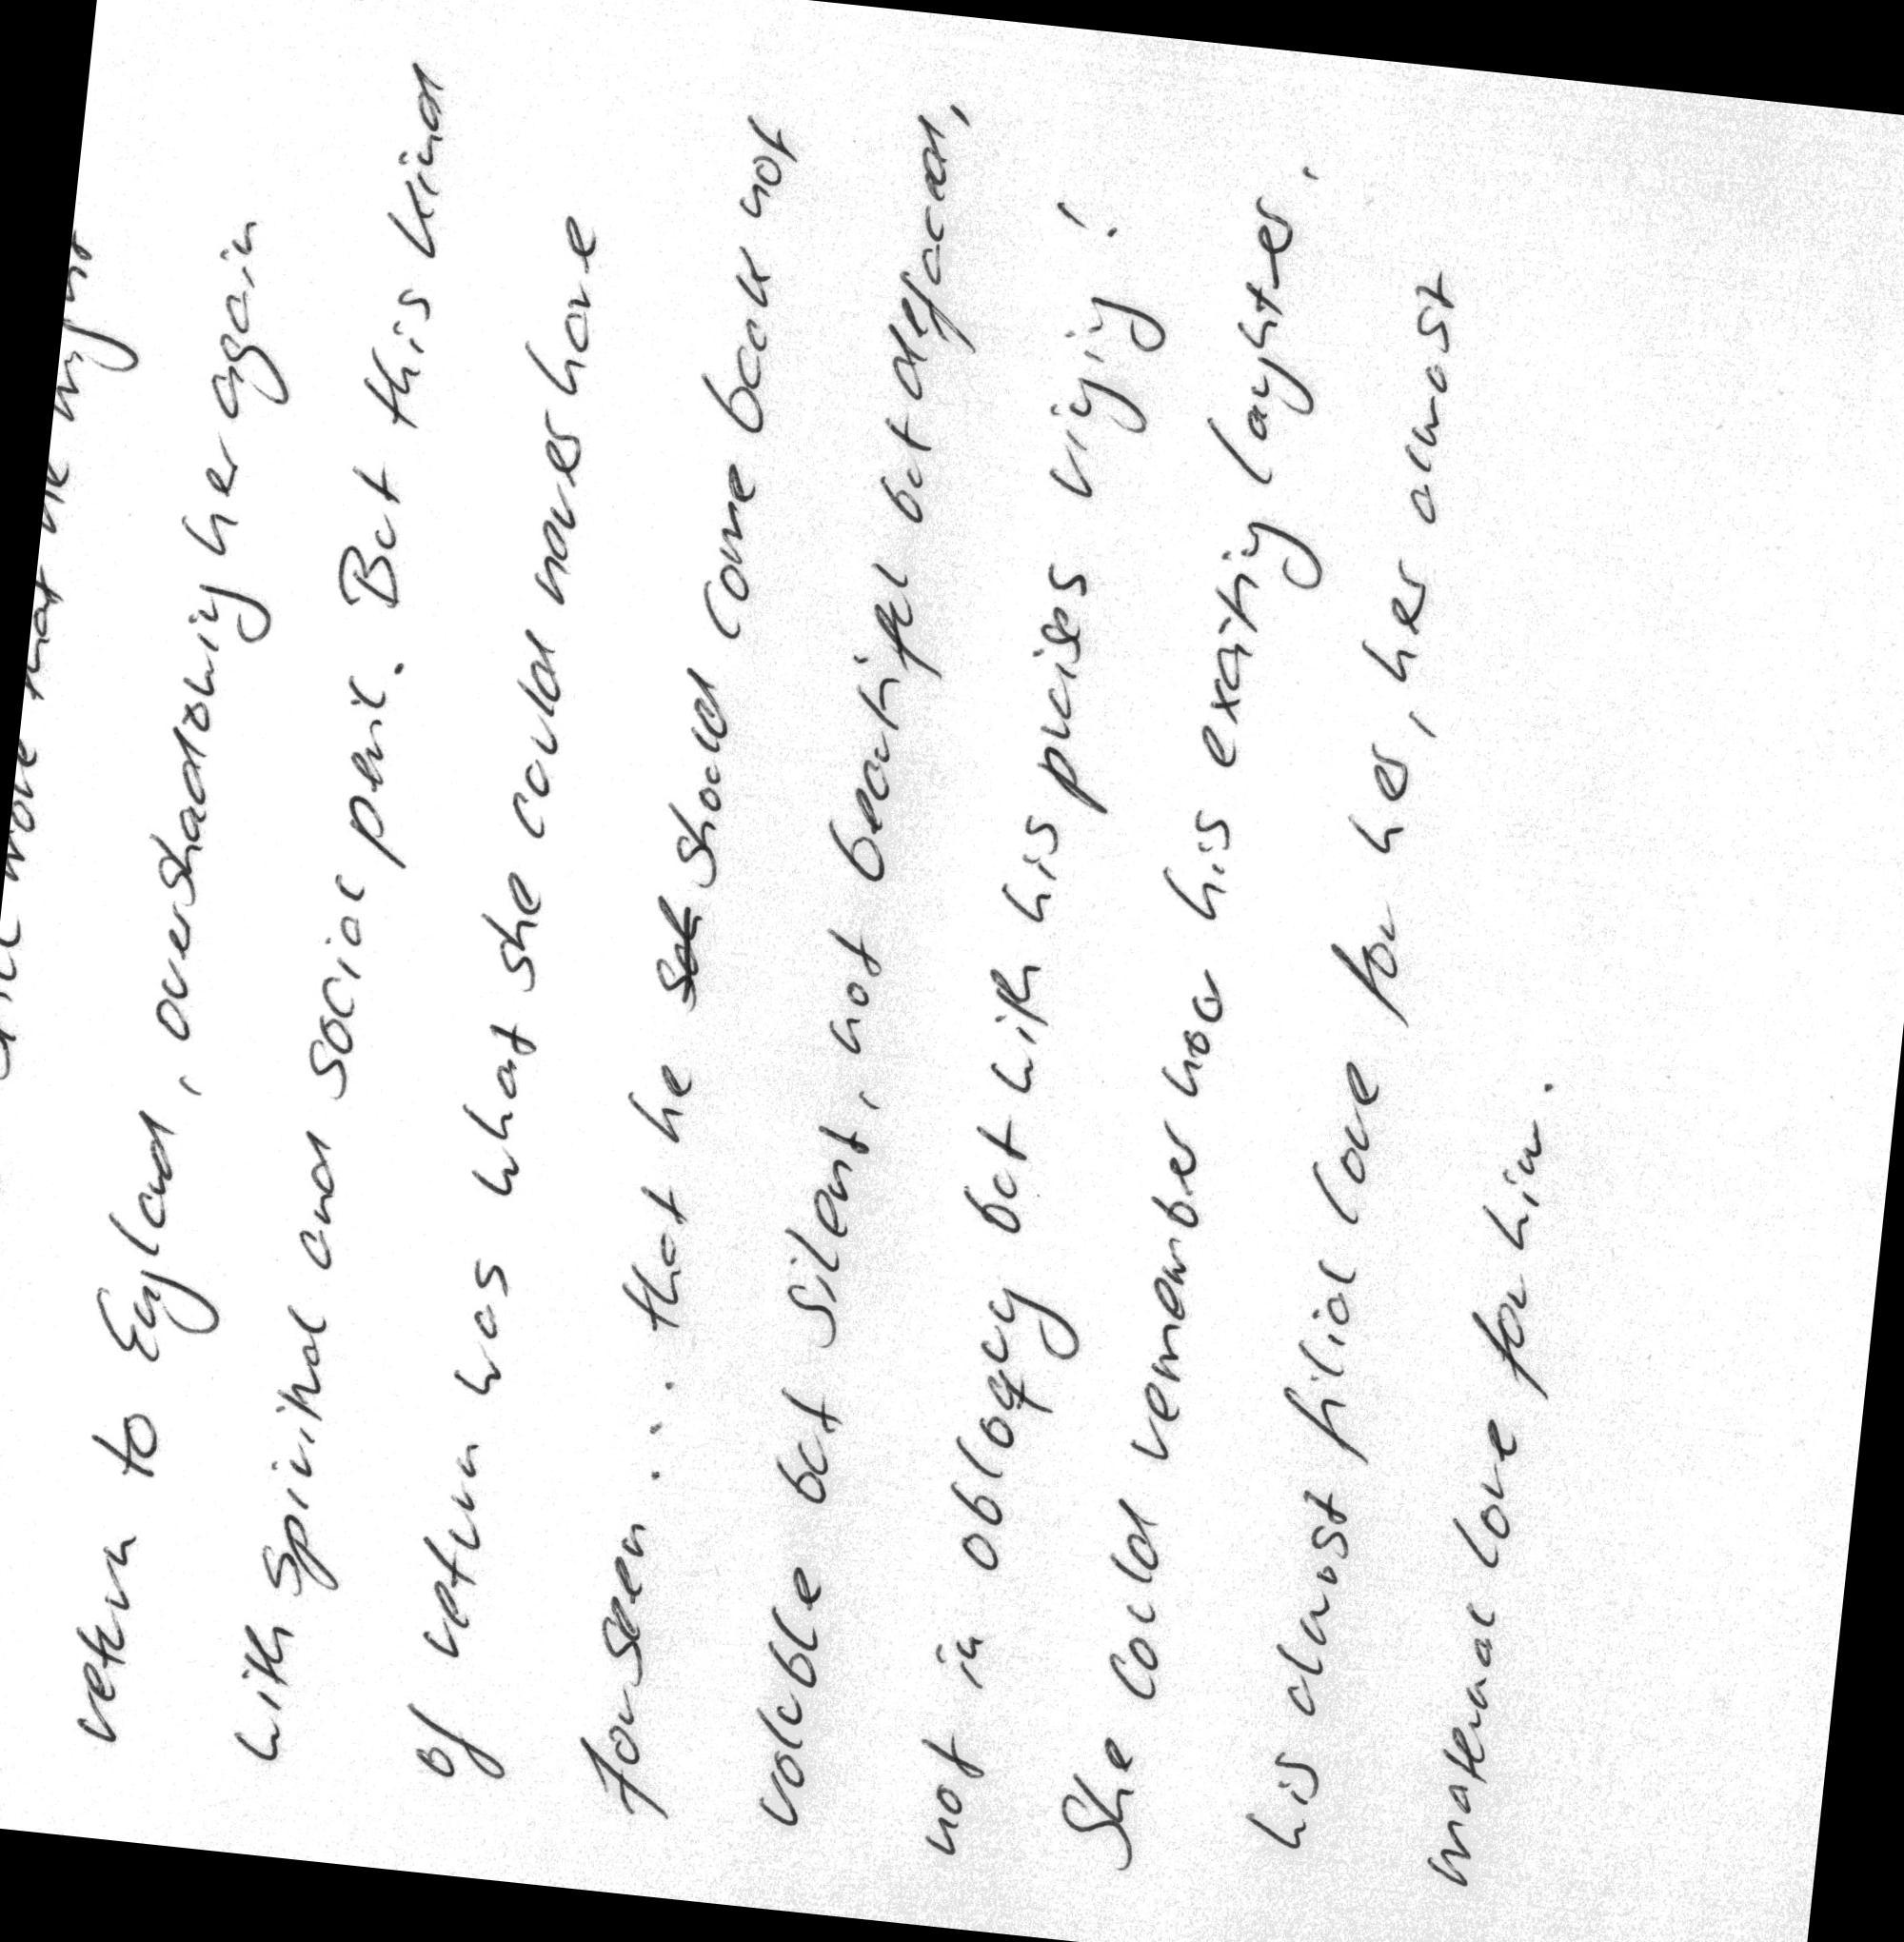 that he might
return to England, overshadowing her again
with spiritual and social peril. But this kind
of return was what she could never have
forseen... that he should come back not
voluble but silent, not beautiful but defaced,
not in obloquy but with his praises ringing!
She could remember how his exciting laughter,
his almost filial love for her, her almost
maternal love for him.